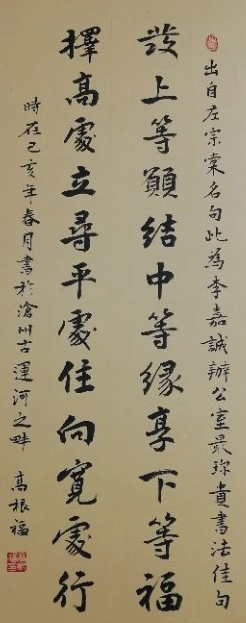 出自左宗棠名句此為李嘉誠辦公室最珍貴書法佳句
發上等願結中等緣享下等福
擇高處立尋平處住向寬處行
時在己亥年春月書於滄州古運河之畔
高根福